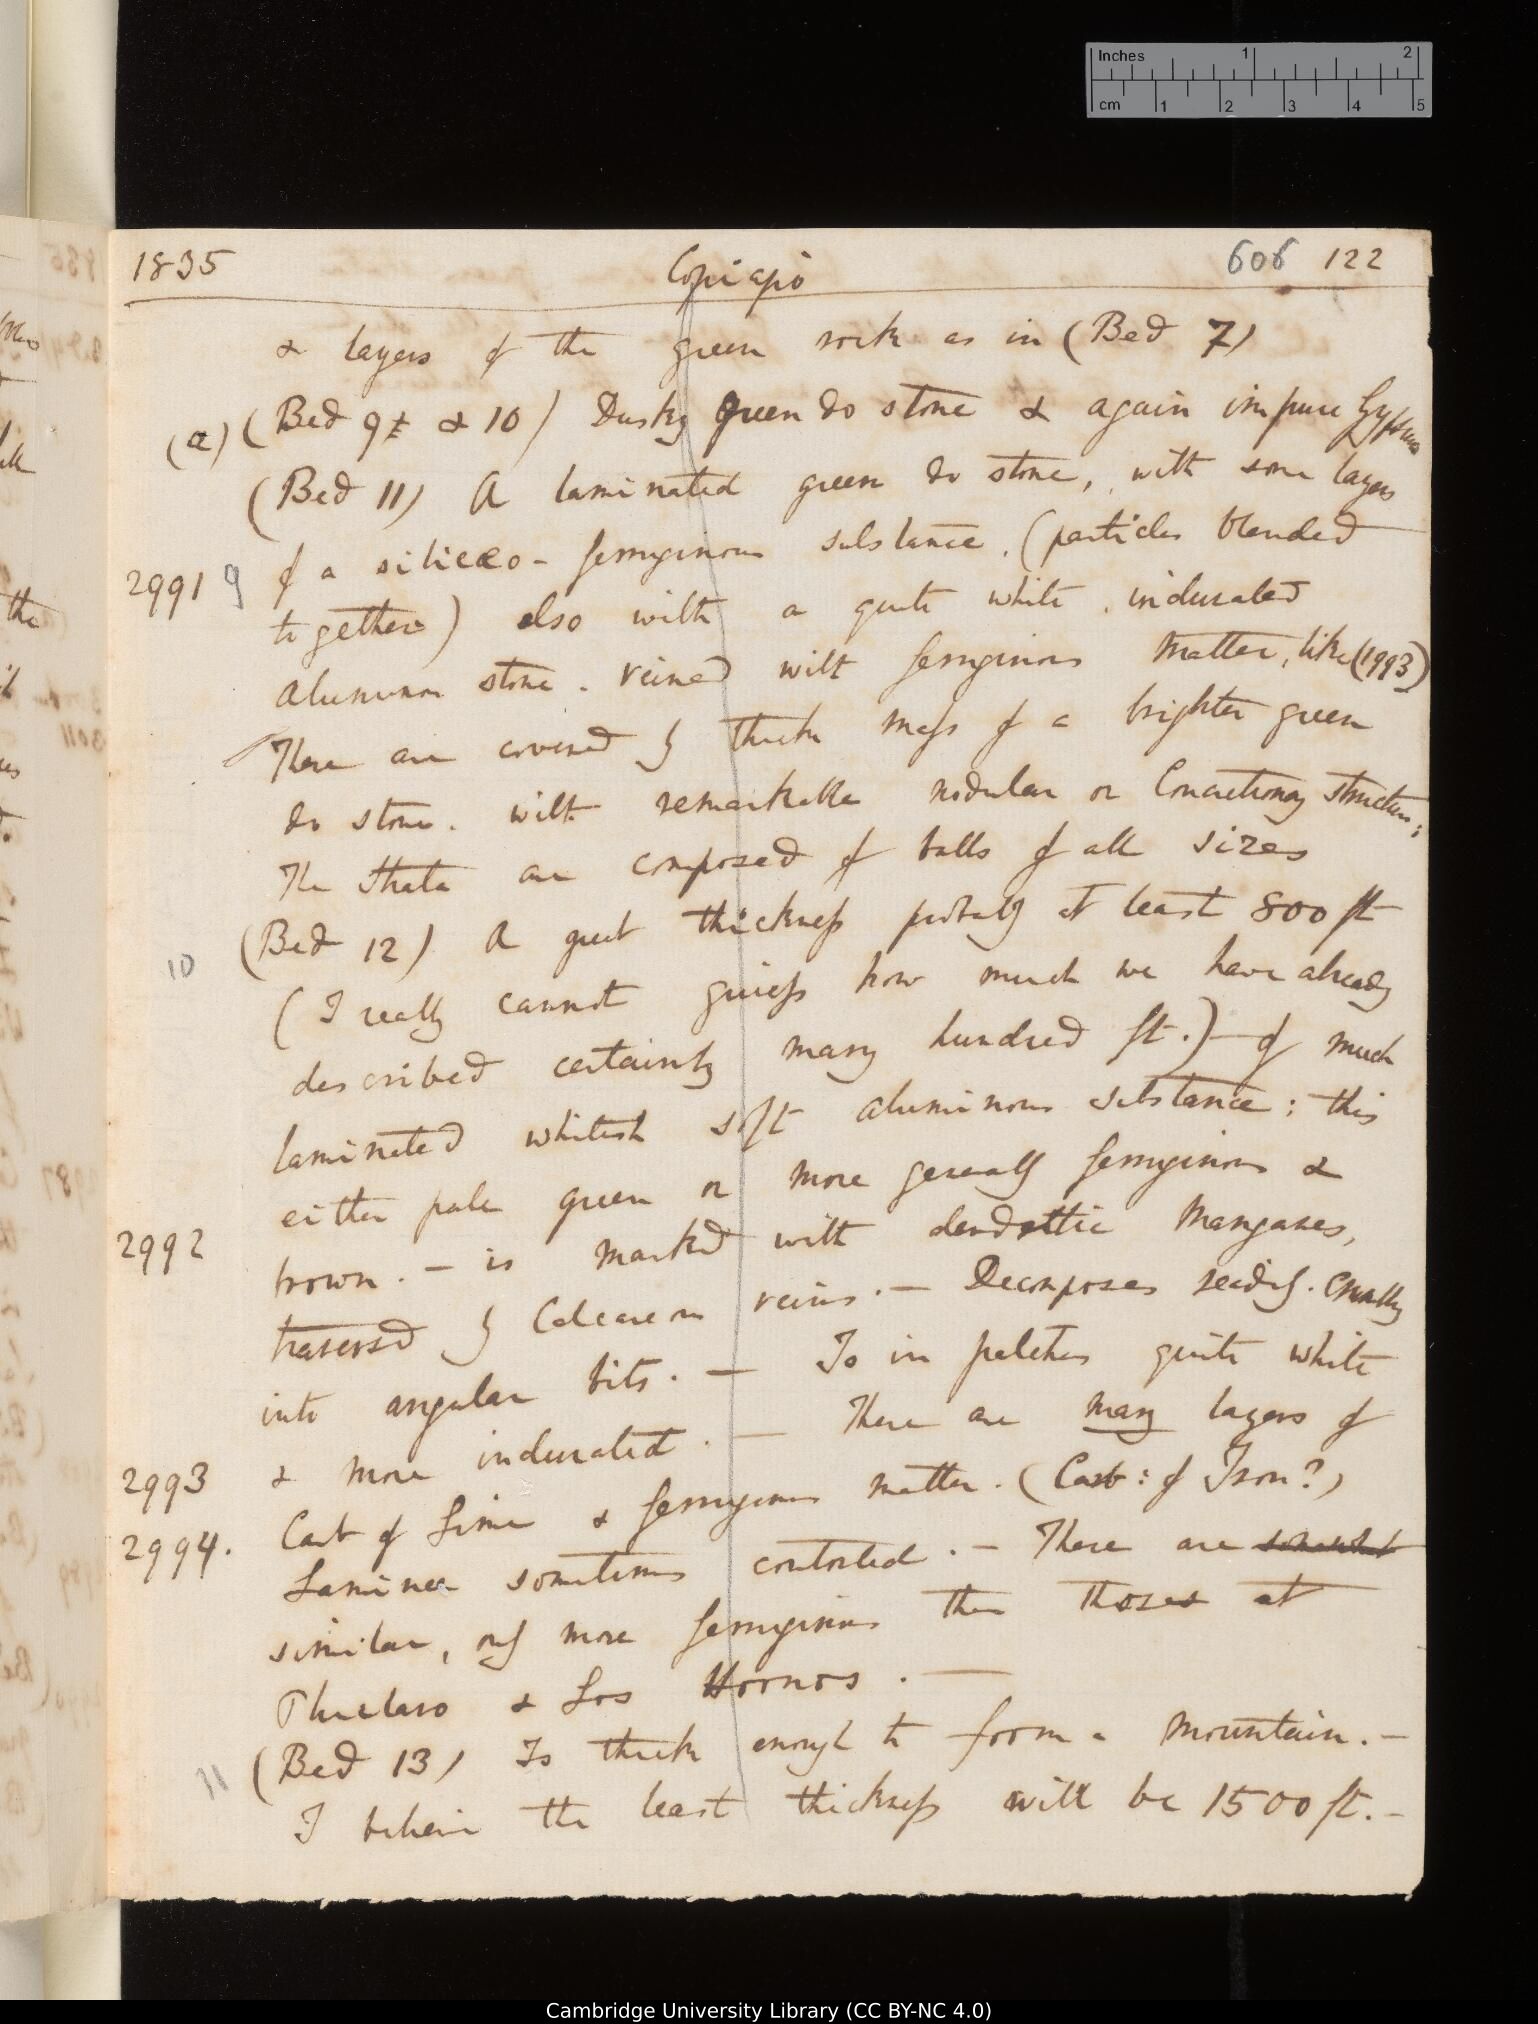 Inches 1 2
cm 1 2 3 4 5
1835 Copiapò 606 122
& layers of the green rock as in (Bed 7)
(a) (Bed 9 & 10) Dusky green do stone & again impure Gypsum
(Bed 11) A laminated green do stone, with some layers
2991 9 of a siliceo-ferruginous substance, (particles blended
together) also with a quite white, indurated
aluminous stone. veined with ferruginous matter, like (1993)
These are covered by thick mass of a brighter green
do stone. with remarkable nodular or Concretionary structure;
The strata are composed of balls of all sizes
10 (Bed 12) A great thickness probably at least 800 ft
(I really cannot guess how much we have already
described certainly many hundred ft.) — of much
laminated whitish soft aluminous substance: this
either pale green or more generally ferruginous &
2992 brown. — is marked with dendrittic Manganes,
traversed by Calcareous veins. — Decomposes readily.
into angular bits. — Is in patches quite white
& more indurated. — There are many layers of
2993 Carb of Lime & ferruginous matter. (Carb: of Iron?)
2994. Laminæ sometimes contorted. — These are somewhat
similar, only more ferruginous than those at
& Los Hornos. —
11 (Bed 13) Is thick enough to form a mountain. —
I believe the least thickness will be 1500 ft. —
Cambridge University Library (CC BY-NC 4.0)